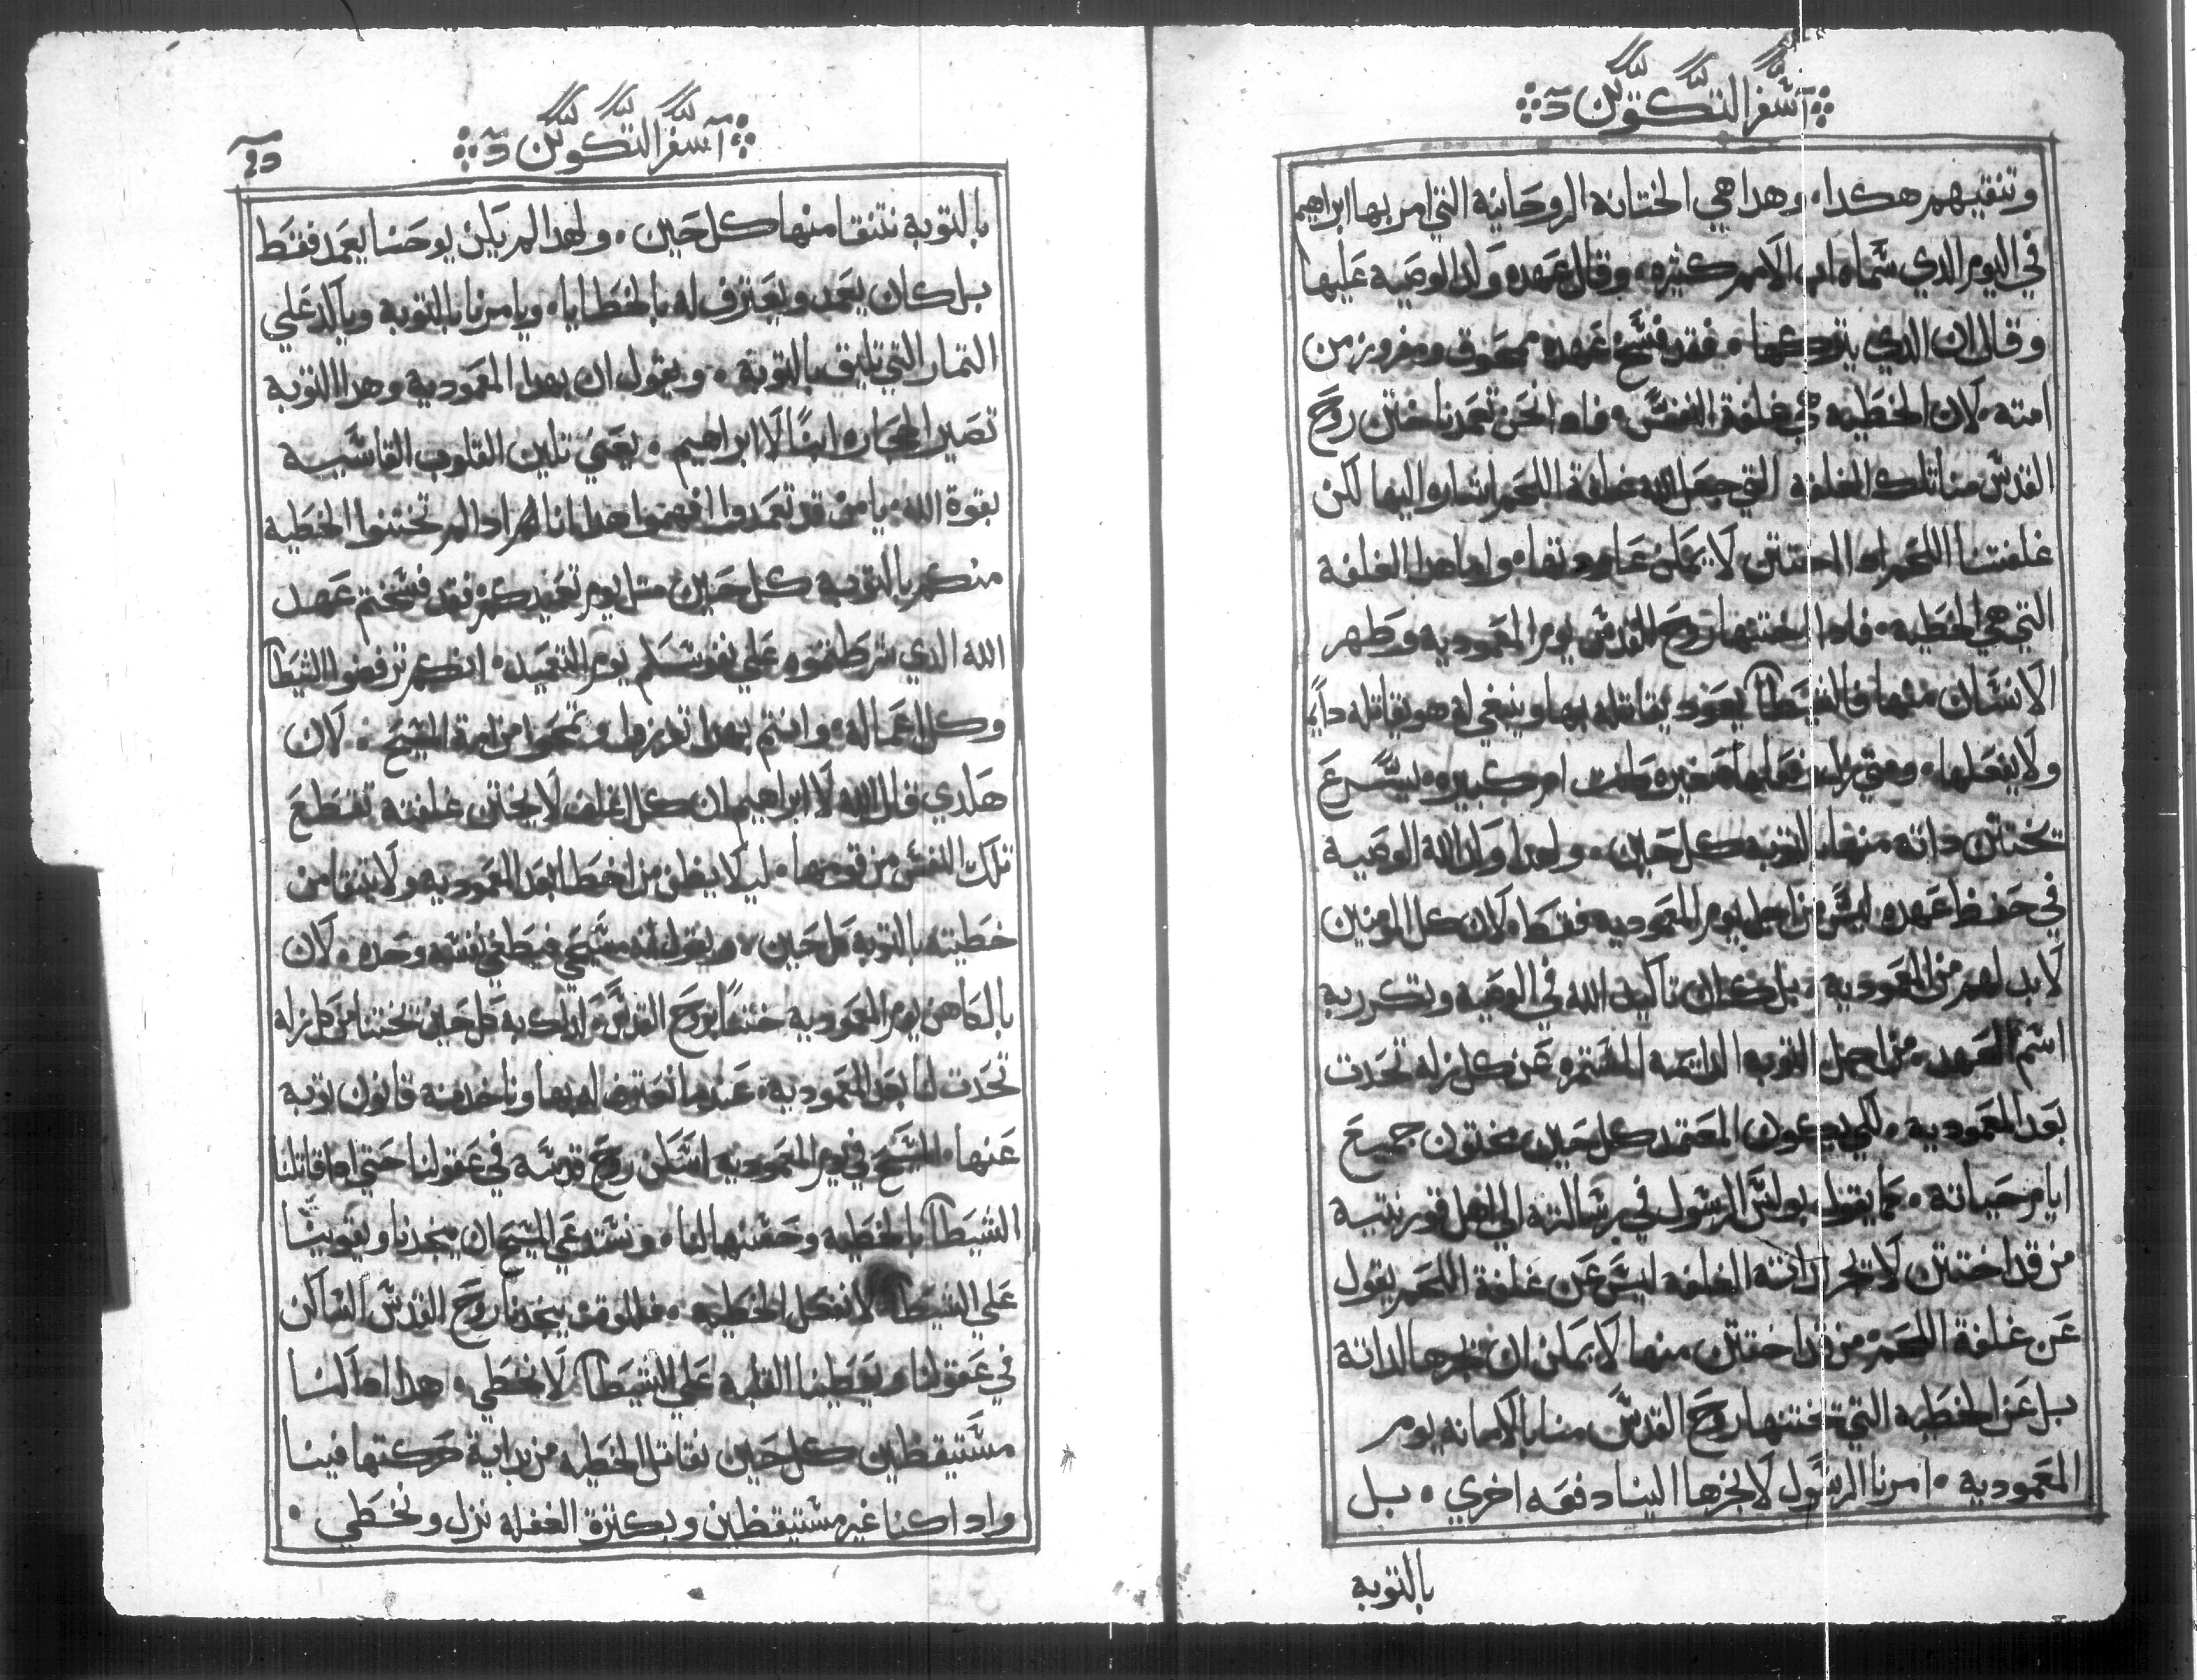 سفر التكوين
وتنقيهم هكدا، وهدا هي الختانه الروحانيه التي امر بها ابراهيم
في اليوم الدي سماه اب لامم كثيره، وقال عهده واد الوصيه عليها
وقال ان الدي يتركها، فقد فسخ عهده ممحوق ومفروز من
امته، لان الخطيه هي غلفة النفس، فادا نحن تعمدنا ختن روح
القدس منا تلك الغلفه التي جعل الله غلفة اللحم اشاره اليها لكن
غلفتنا اللحم ادا اختتن لا يمكن عاد ودتقا، واما هدا الغلفة
التي هي الخطيه، فادا اختنها روح القدس يوم المعموديه وطهر
الانسان منها فالشيطان يعود يقاتله بها وينبغي له هو يقاتله دايما
ولا يفعلها، ومتي زل وفعلها صغيره كانت ام كبيره، يسرع
تختتن داته منها بالتوبه كل حين، ولهدا واد الله الوصيه
في حفظ عهده ليس من اجل يوم المعموديه فقط، لان كل المومنين
لابد لهم من المعموديه، بل كان تاكيد الله في الوصيه وتكرر به
اسم العهد، من اجل التوبه الدايمه المستمره عن كل زله تحدت
بعد المعموديه، لكي يكون المعتمد كل حين مختون جميع
ايام حياته، كما يقول بولس الرسول في رسالته الي اهل قورنتيه
من قد اختتن لا تجر الي داته الغلفه ليس عن غلفة اللحم يقول
عن غلفة اللحم، من قد اختتن منها لا يمكن ان تجرها لداته
بل عن الخطيه التي تختنها روح القدس منا بالامانه يوم
المعموديه، امرنا الرسول لا نجرها الينا دفعه اخري، بل
بالتوبه
سفر التكوين
بالتوبه نتنقا منها كل حين، ولهدا لم يكن يوحنا يعمد فقط
بل كان يعمد ويعترف له بالخطايا، ويامرنا بالتوبه وياكد علي
التمار التي تليق بالتوبه، ويقول ان بهدا المعموديه وهدا التوبه
تصير الحجاره ابنا لابراهيم، يعني تلين القلوب القاسيه
بقوة الله، يا من قد تعمدوا افهموا هدا انا لكم ادا لم تختنوا الخطيه
منكم بالتوبه كل حين متل يوم تعميدكم، فقد فسختم عهد
الله الدي شرطتموه علي نفوسكم يوم التعميد، انكم ترفضوا الشيطان
وكل اعماله، وانتم بهدا تفرزوا وتمحوا من امة المسيح، لان
هكدي قال الله لابراهيم ان كل اغلف لا يختن غلفته تقطع
تلك النفس من قومها، ليلا يظن من اخطا بعد المعموديه ولا يتنقا من
خطيته بالتوبه كل حين، ويقول انه مسيحي فيطغي نفسه وحده، لان
بالكاهن يوم المعموديه ختمنا بروح القدس، كدلك به كل حين تختننا من كل زله
تحدت لنا بعد المعموديه، عندما نعترف له بها وناخد منه قانون توبه
عنها، المسيح في يوم المعموديه اسكن روح قدسه في عقولنا حتي ادا قاتلنا
الشيطان بالخطيه وحسنها لنا، ونستدعي المسيح ان ينجدنا ويقوينا
علي الشيطان، لا نفعل الخطيه، فللوقت ينجدنا روح القدس الساكن
في عقولنا ويعطينا الغلبه علي الشيطان، لا نخطي، هدا ادا كنا
مستيقظين كل حين نقاتل الخطيه من بداية حركتها فينا
وادا كنا غير مستيقظين وبكترة الغفله نزل ونخطي،